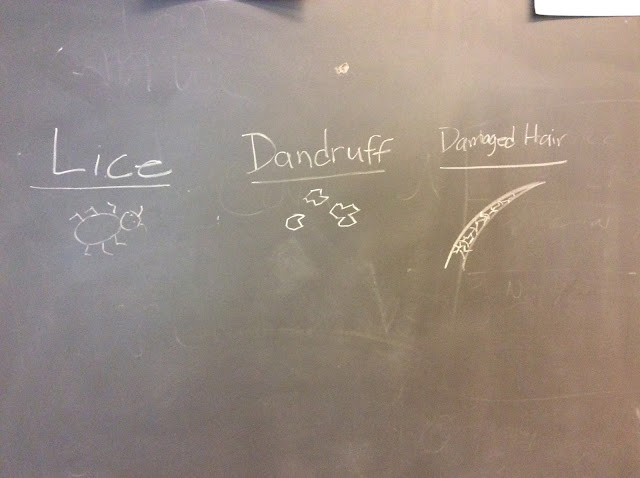 Lice
Dandruff
Damaged Hair